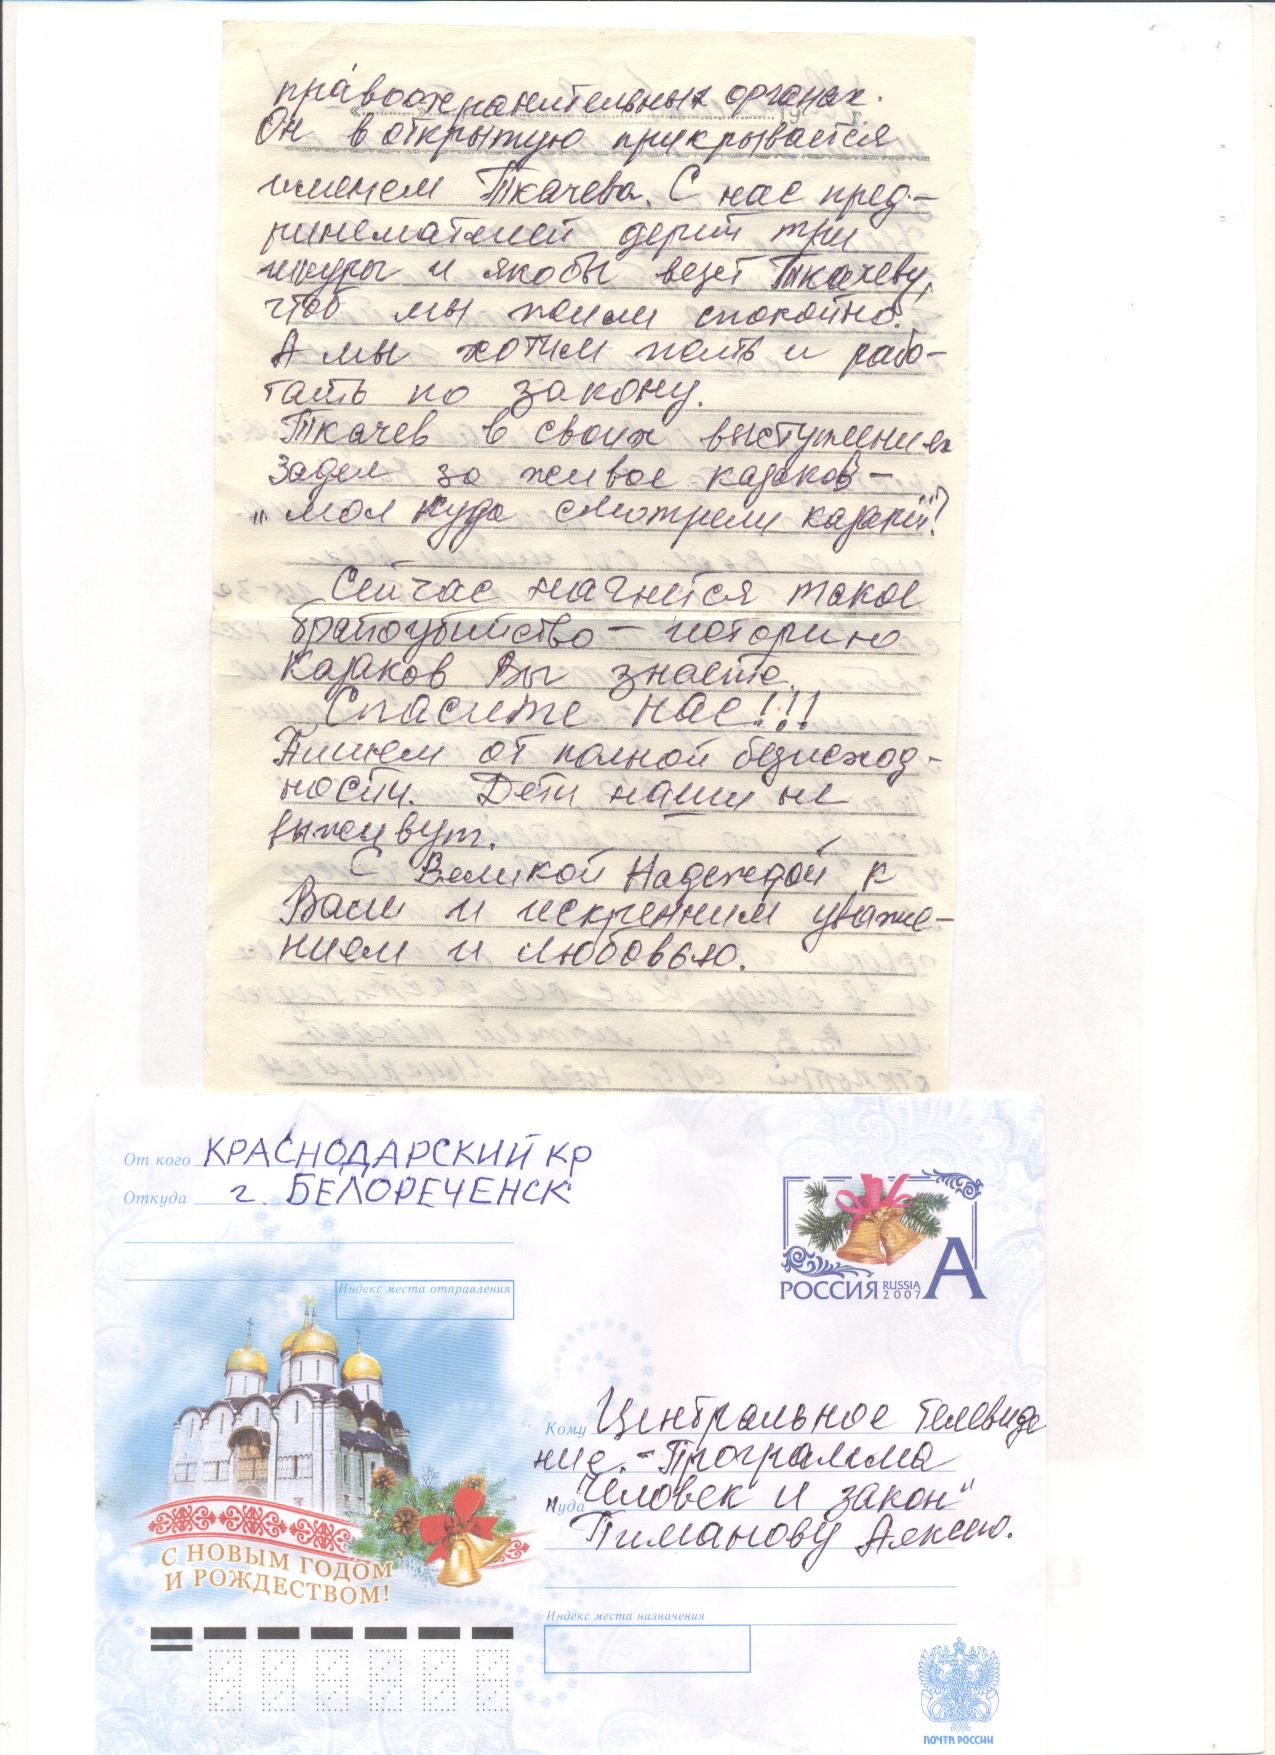 правоохранительных органах.
Он в открытую прикрывается
именем Ткачева. С нас пред-
ринемателей дерит три
шкуры и якобы везет Ткачеву,
чтоб мы жили спокойно.
А мы хотим жить и рабо-
тать по закону.
Ткачев в своих выступлениях
задел за живое казаков –
„мол куда смотрели казаки"?
Сейчас начнется такое
братоубийство – историю
Казаков Вы знаете.
Спасите нас!!!
Пишем от полной безисход-
ности. Дети наши не
выживут.
С Великой Надеждой к
Вам и искренним уваже-
нием и любовью.
От кого КРАСНОДАРСКИЙ КР
Откуда г. БЕЛОРЕЧЕНСК
Индекс места отправления
РОССИЯ RUSSIA 2007 А
Кому Центральное телевиде
ние. - Программа
Куда "Человек и закон"
Пиманову Алексею.
С НОВЫМ ГОДОМ
И РОЖДЕСТВОМ!
Индекс места назначения
ПОЧТА РОССИИ